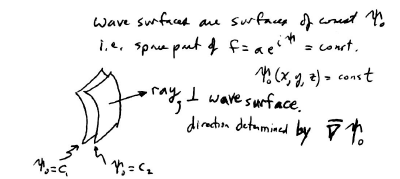 wave surfaces are surfaces of const ψ₀
i.e. space part of f = a e^{iψ} = const.
ψ₀(x, y, z) = const
ray, ⊥ wave surface.
direction determined by ∇̄ψ₀
ψ₀ = c₁
ψ₀ = c₂